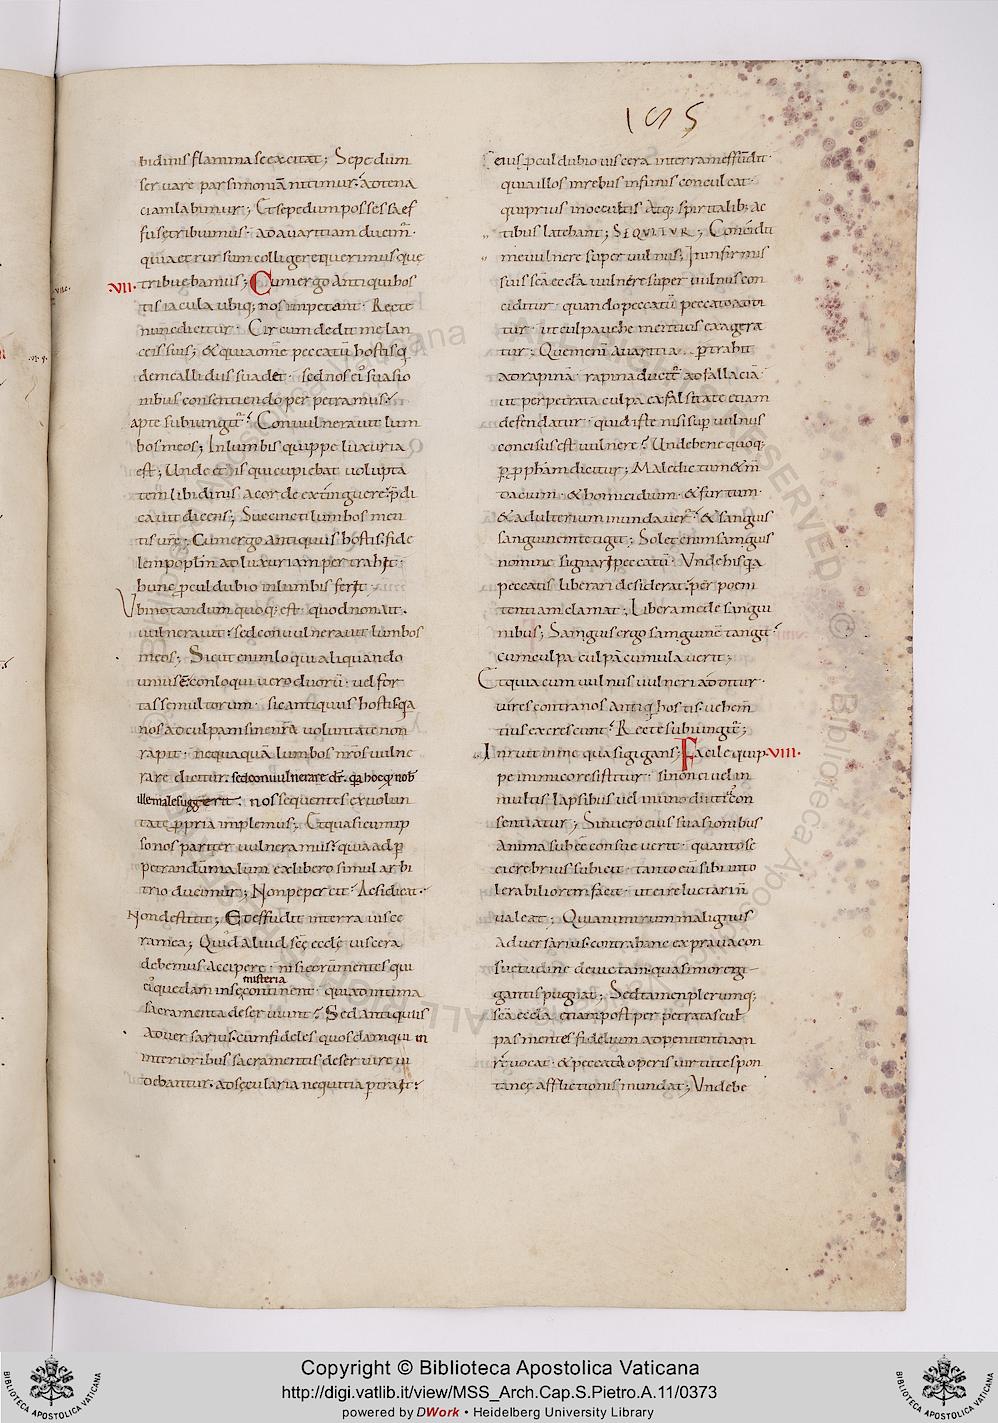 195
bidinis flamma se excitat; Sepe dum
servare parsimoniã nitimur. ad tena
ciam labimur; Et sepe dum possessa ef
fuse tribuimus. ad avaritiam ducim̃.
quia et rursum colligere querimus que
.VII. tribuebamus; Cum ergo antiqui hos
tis iacula ubiq; nos inpetant. Recte
nunc dicitur. Circumdedit me lan
ceis suis; & quia om̃e peccatũ hostis q̃
dem callidus suadet. sed nos ei' suasio
nibus consentiendo perpetramus.
apte subiungit̃. Convulneravit lum
bos meos; In lumbis quippe luxuria
est; Unde et is qui cupiebat volupta
tem libidinis a corde extinguere. p̃di
cavit dicens; Succincti lumbos men
tis vr̃e; Cum ergo antiquus hostis fide
lem popl̃m ad luxuriam pertrahit.
hunc procul dubio in lumbis ferit.
Ubi notandum quoq; est. quod non ait.
vulneravit. sed convulneravit lumbos
meos; Sicut enim loqui aliquando
unius ẽ. conloqui vero duorũ. vel for
tasse multorum. sic antiquus hostis q̃a
nos ad culpam sine nr̃a voluntate non
rapit. nequaquã lumbos nr̃os vulne
rare dicitur. sed convulnerare dr̃. q̃a hoc q̃ nob'
ille male suggerit. nos sequentes ex volun
tate p̃pria implemus; Et quasi cum ip
so nos pariter vulneramus. quia ad p̃
petrandũ malum ex libero simul arbi
trio ducimur; Non pepercit. Ac si dicat.
Non destitit; Et effudit in terra visce
ra mea; Quid aliud sc̃e eccl̃e viscera
debemus accipere. nisi eorũ mentes qui
misteria
ei' quedam in se continent. qui ad intima
sacramenta deserviunt? Sed antiquus
adversarius. cum fideles quosdam qui in
interioribus sacramentis deservire vi
debantur. ad sęcularia nequitia p̃trahit.
Eeius p̃cul dubio viscera in terram effũdit.
quia illos in rebus infimis conculcat.
qui prius in occultis atq; spiritalib; ac
tibus latebant; SEQUITUR; Concidit
me vulnere super vulnus; In infirmis
suis sc̃a eccl̃a vulnere super vulnus con
ciditur. quando peccatũ peccato adici
tur. ut culpa vehementius exagera
tur; Quem enĩ avaritia p̃trahit
ad rapinã. rapina ducit̃ ad fallaciã.
ut perpetrata culpa ex falsitate etiam
defendatur. quid iste nisi sup̃ vulnus
concisus est vulnere? Unde bene quoq;
p̃ p̃pham dicitur; Maledictum & m̃
dacium. & homicidium. & furtum.
& adulterium inundaver̃. & sanguis
sanguinem tetigit; Solet enim sanguis
nomine signari peccatũ. Unde his q̃a
peccatis liberari desiderat. per poeni
tentiam clamat; Libera me de sangui
nibus; Sanguis ergo sanguinẽ tangit.
cum culpa culpã cumulaverit;
Et quia cum vulnus vulneri additur.
vires contra nos antiq' hostis. vehem̃
tius excrescunt. Recte subiungit̃;
Inruit in me quasi gigans; Facile quip .VIII.
pe inimico resistitur. si non ei vel in
multis lapsibus vel in uno diutius con
sentiatur; Sin vero eius suasionibus
anima subesse consueverit. quanto se
ei crebrius subicit. tanto eũ sibi into
lerabiliorem facit. ut ei reluctari ñ
valeat; Quia nimirum malignus
adversarius contra hanc ex prava con
suetudine devictam. quasi more gi
gantis pugnat; Sed tamen plerumq;
sc̃a eccl̃a. etiam post perpetratas cul
pas mentes fidelium ad penitentiam
revocat. & peccata operis virtute spon
taneę afflictionis mundat; Unde be
Copyright © Biblioteca Apostolica Vaticana
http://digi.vatlib.it/view/MSS_Arch.Cap.S.Pietro.A.11/0373
powered by DWork • Heidelberg University Library